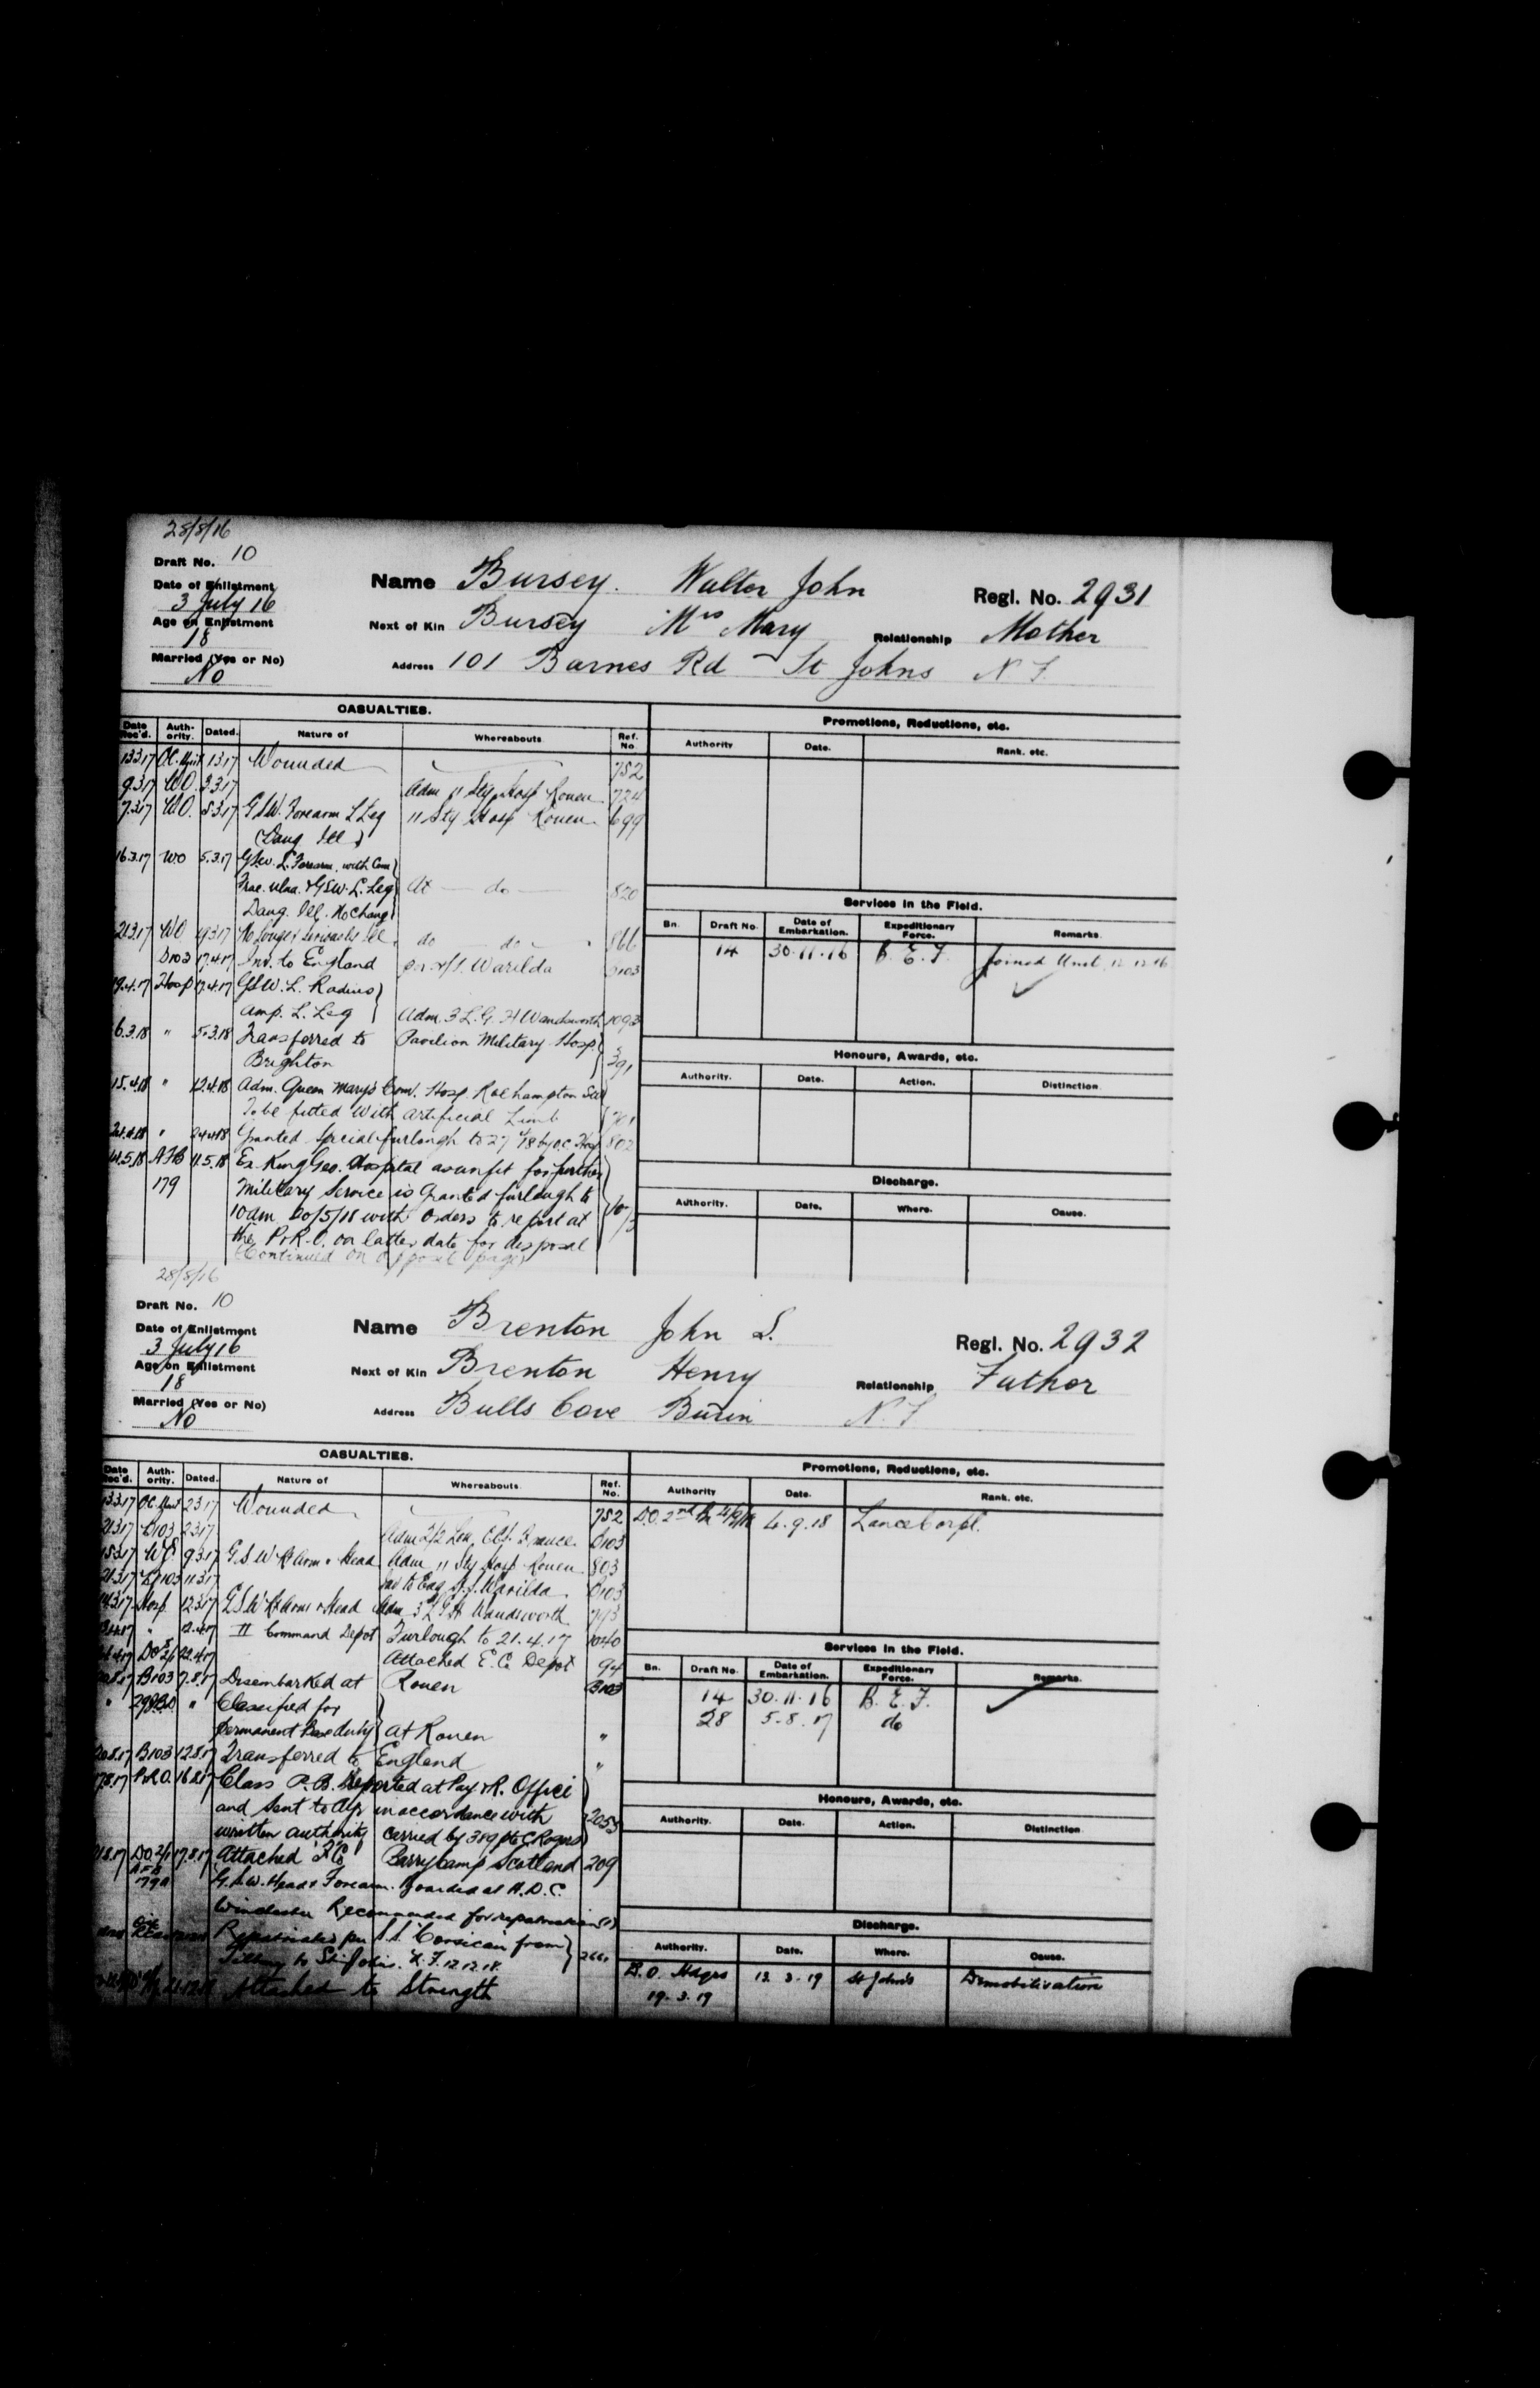 28/8/16
Draft No. 10
Date of Enlistment
3 July 16
Age on Enlistment
18
Married (Yes or No)
No
Name Bursey. Walter John Regl. No. 2931
Next of Kin Bursey Mrs Mary Relationship Mother
Address 101 Barnes Rd - St Johns N.F.
CASUALTIES.
Date Rec'd. Auth-ority. Dated. Nature of Whereabouts Ref. No.
13.3.17 OC. Unit 1.3.17 Wounded 752
9.3.17 WO. 3.3.17 Adm 11 Sty Hosp Rouen 724
7.3.17 WO. 5.3.17 GSW. Forearm L Leg 11 Sty Hosp Rouen 699
(Dang Ill)
16.3.17 WO 5.3.17 GSW. L. Forearm, with Com
Frac. ulna. & GSW. L. Leg At do 820
Dang. Ill. No Change
21.3.17 WO 19.3.17 No longer seriously ill. do do 866
B103 17.4.17 Inv. to England per H/S. Warilda B103
19.4.17 Hosp 17.4.17 GSW. L. Radius
Amp. L. Leg Adm. 3 L. G. H Wandsworth 1093
6.3.18 " 5.3.18 Transferred to Pavilion Military Hosp.
Brighton 391
15.4.18 " 12.4.18 Adm. Queen Mary's Conv. Hosp. Roehampton
To be fitted with artificial Limb 701
24.4.18 " 24.4.18 Granted special furlough to 27/4/18 by O.C. Hosp 802
14.5.18 AFB 11.5.18 Ex. King Geo. Hospital as unfit for further
179 Military Service is granted furlough to
10 am 20/5/18 with orders to report at
the P&R.O. on latter date for disposal
(Continued on opposit page)
Promotions, Reductions, etc.
Authority Date. Rank. etc.
Services in the Field.
Bn. Draft No. Date of Embarkation. Expeditionary Force. Remarks.
14 30.11.16 B.E.F. Joined Unit 12.12.16
Honours, Awards, etc.
Authority. Date. Action. Distinction
Discharge.
Authority. Date. Where. Cause.
28/8/16
Draft No. 10
Date of Enlistment
3 July 16
Age on Enlistment
18
Married (Yes or No)
No
Name Brenton John S. Regl. No. 2932
Next of Kin Brenton Henry Relationship Father
Address Bulls Cove Burin N.F.
CASUALTIES.
Date Rec'd. Auth-ority. Dated. Nature of Whereabouts Ref. No.
13.3.17 OC. Unit 2.3.17 Wounded 752
21.3.17 B103 2.3.17 Adm 2/2 Lon. CCS. France B103
15.3.17 WO. 9.3.17 G S W Rt Arm & Head Adm 11 Sty Hosp Rouen 803
21.3.17 B103 11.3.17 Inv to Eng H.S. Warilda B103
14.3.17 Hosp. 12.3.17 GSW Rt Arm & Head Adm 3 L G H Wandsworth 793
" 12.4.17 II Command Depot Furlough to 21.4.17 1040
22.4.17 Attached E. Co Depot 94
B103 7.8.17 Disembarked at Rouen B103
" " Classified for
permanent Base duty at Rouen "
20.8.17 B103 12.8.17 Transferred to England "
P&R.O. 16.8.17 Class P.B. Reported at Pay & R. Office
and sent to Ayr in accordance with
written authority carried by 389 Pte C Rogers 2053
DO 2/1 17.8.17 Attached F Co Barry Camp Scotland 209
AFB 179a G.S.W. Head & Forearm. Boarded at H.D.C.
Winchester Recommended for repatriation
Repatriated per S.S. Corsican from
Tilbury to St. Johns. N.F. 12.12.18. 2661
Attached to Strength
Promotions, Reductions, etc.
Authority Date. Rank. etc.
D.O. 2nd Bn 4/9/18 4.9.18 Lance Corpl.
Services in the Field.
Bn. Draft No. Date of Embarkation. Expeditionary Force. Remarks.
14 30.11.16 B.E.F.
28 5.8.17 do
Honours, Awards, etc.
Authority. Date. Action. Distinction
Discharge.
Authority. Date. Where. Cause.
B.O. Hdqrs 13.3.19 St John's Demobilization
19.3.19